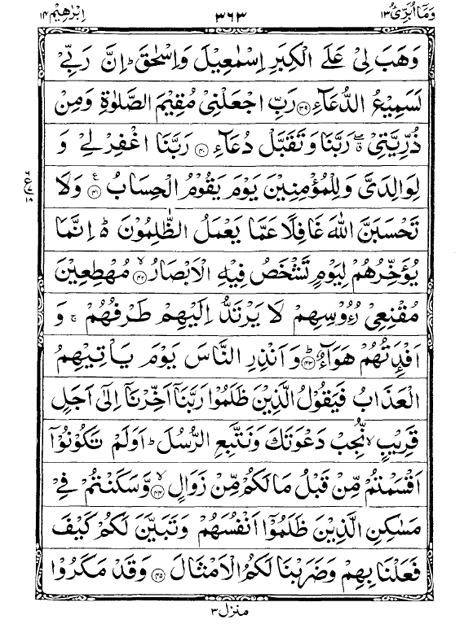 وَمَآ اُبَرِّئُ ١٣ ٣٦٣ اِبْرٰهِيْم ١٤
وَهَبَ لِيْ عَلَى الْكِبَرِ اِسْمٰعِيْلَ وَاِسْحٰقَ ؕ اِنَّ رَبِّيْ
لَسَمِيْعُ الدُّعَآءِ ﴿٣٩﴾ رَبِّ اجْعَلْنِيْ مُقِيْمَ الصَّلٰوةِ وَمِنْ
ذُرِّيَّتِيْ ۖۗ رَبَّنَا وَتَقَبَّلْ دُعَآءِ ﴿٤٠﴾ رَبَّنَا اغْفِرْ لِيْ وَ
لِوَالِدَيَّ وَلِلْمُؤْمِنِيْنَ يَوْمَ يَقُوْمُ الْحِسَابُ ﴿٤١﴾ وَلَا
تَحْسَبَنَّ اللّٰهَ غَافِلًا عَمَّا يَعْمَلُ الظّٰلِمُوْنَ ۬ؕ اِنَّمَا
يُؤَخِّرُهُمْ لِيَوْمٍ تَشْخَصُ فِيْهِ الْاَبْصَارُ ﴿٤٢﴾ مُهْطِعِيْنَ
مُقْنِعِيْ رُءُوْسِهِمْ لَا يَرْتَدُّ اِلَيْهِمْ طَرْفُهُمْ ۚ وَ
اَفْـِٕدَتُهُمْ هَوَآءٌ ﴿٤٣﴾ وَاَنْذِرِ النَّاسَ يَوْمَ يَاْتِيْهِمُ
الْعَذَابُ فَيَقُوْلُ الَّذِيْنَ ظَلَمُوْا رَبَّنَآ اَخِّرْنَآ اِلٰٓى اَجَلٍ
قَرِيْبٍ ۙ نُّجِبْ دَعْوَتَكَ وَنَتَّبِعِ الرُّسُلَ ؕ اَوَلَمْ تَكُوْنُوْٓا
اَقْسَمْتُمْ مِّنْ قَبْلُ مَا لَكُمْ مِّنْ زَوَالٍ ﴿٤٤﴾ وَّسَكَنْتُمْ فِيْ
مَسٰكِنِ الَّذِيْنَ ظَلَمُوْٓا اَنْفُسَهُمْ وَتَبَيَّنَ لَكُمْ كَيْفَ
فَعَلْنَا بِهِمْ وَضَرَبْنَا لَكُمُ الْاَمْثَالَ ﴿٤٥﴾ وَقَدْ مَكَرُوْا
منزل ٣